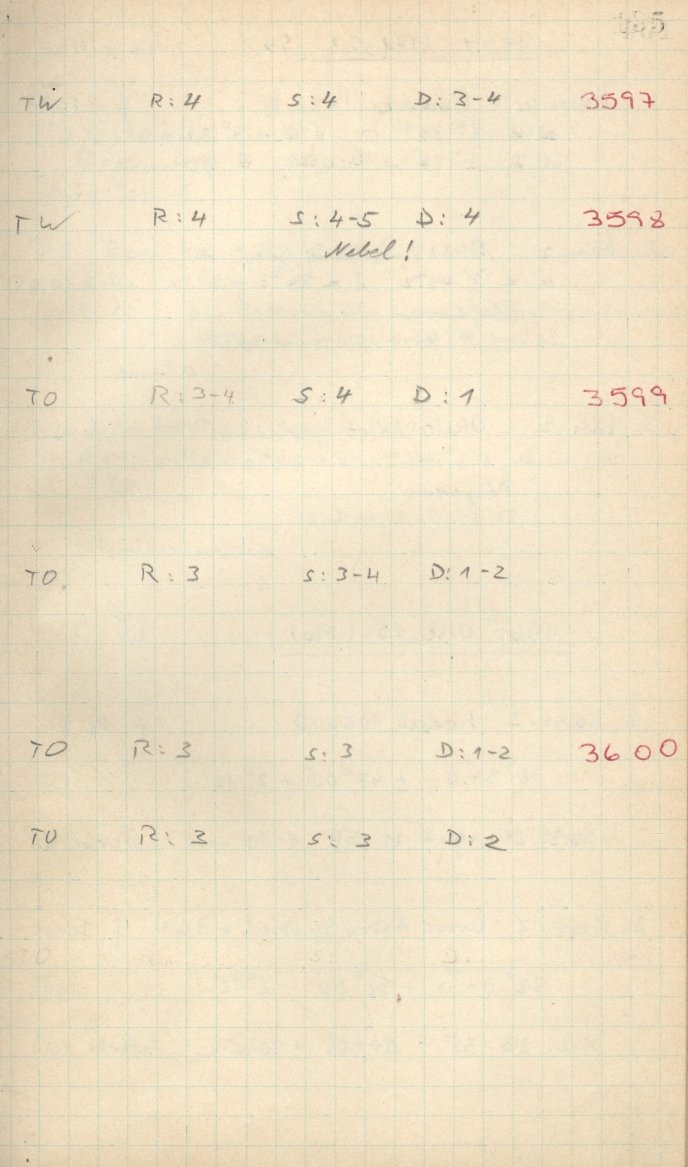 TW R: 4 S: 4 D: 3-4 3597
TW R: 4 S: 4-5 D: 4 3598
Nebel!
TO R: 3-4 S: 4 D: 1 3599
TO R: 3 S: 3-4 D: 1-2
TO R: 3 S: 3 D: 1-2 3600
TO R: 3 S: 3 D: 2